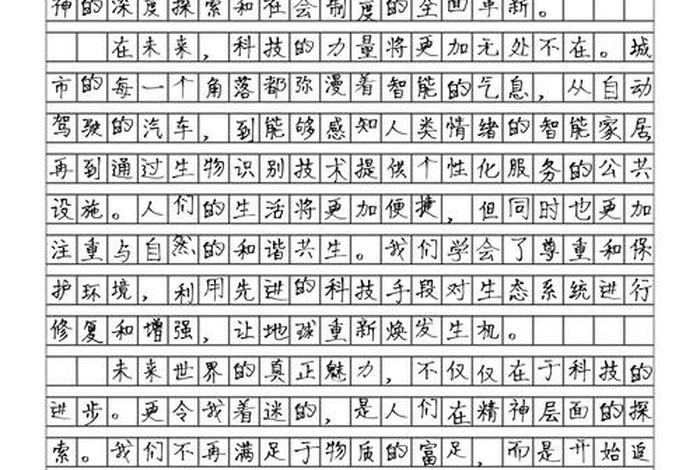 神的深度探索和社会制度的全面革新。
在未来，科技的力量将更加无处不在。城
市的每一个角落都弥漫着智能的气息，从自动
驾驶的汽车，到能够感知人类情绪的智能家居
再到通过生物识别技术提供个性化服务的公共
设施。人们的生活将更加便捷，但同时也更加
注重与自然的和谐共生。我们学会了尊重和保
护环境，利用先进的科技手段对生态系统进行
修复和增强，让地球重新焕发生机。
未来世界的真正魅力，不仅仅在于科技的
进步。更令我着迷的，是人们在精神层面的探
索。我们不再满足于物质的富足，而是开始追